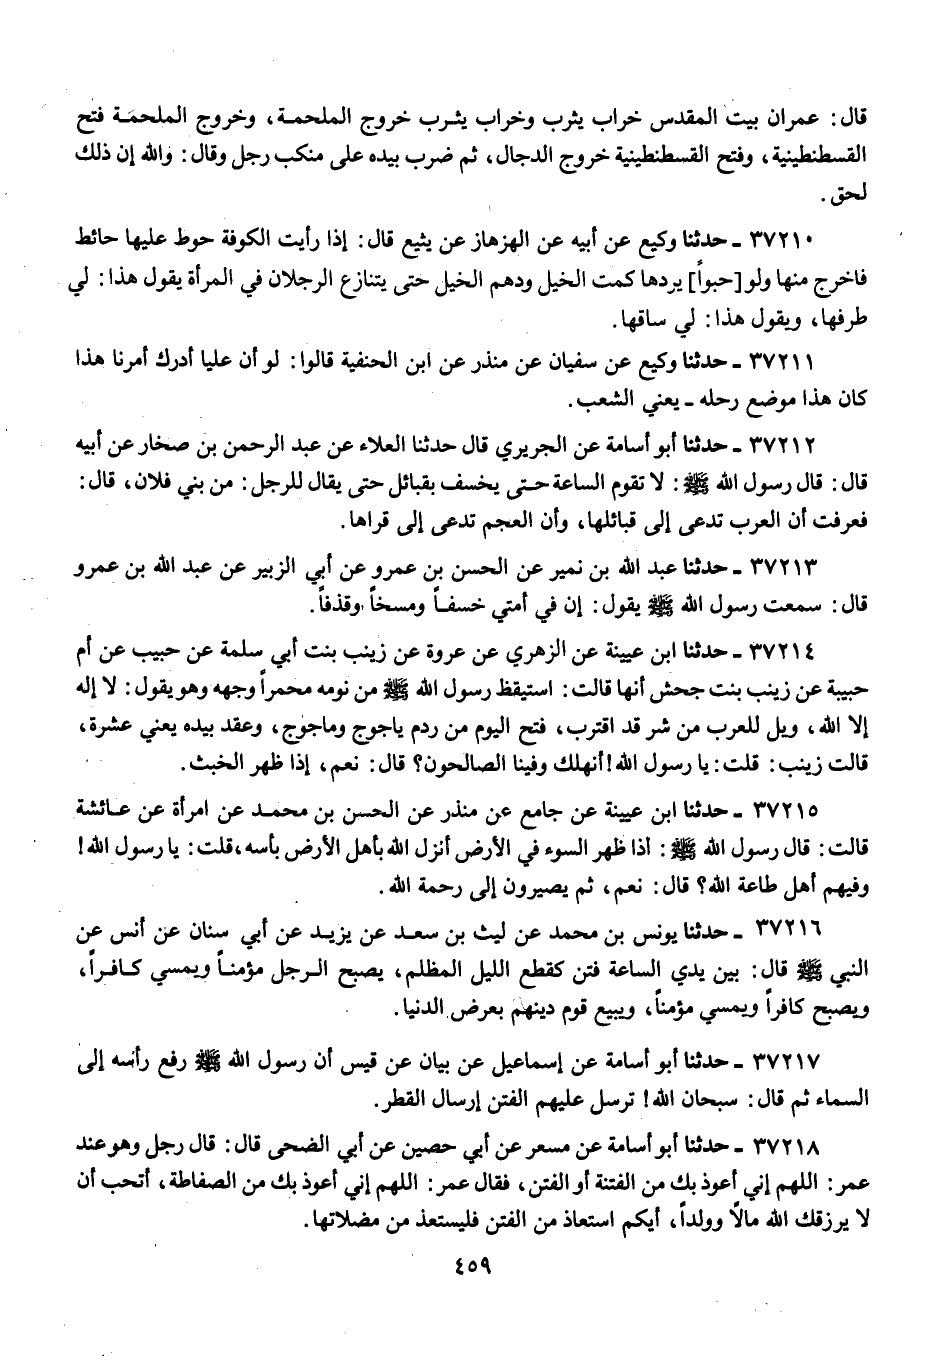 قال: عمران بيت المقدس خراب يثرب وخراب يثرب خروج الملحمة، وخروج الملحمة فتح
القسطنطينية، وفتح القسطنطينية خروج الدجال، ثم ضرب بيده على منكب رجل وقال: والله إن ذلك
لحق.
٣٧٢١٠ - حدثنا وكيع عن أبيه عن الهزهاز عن يثيع قال: إذا رأيت الكوفة حوط عليها حائط
فاخرج منها ولو [حبواً] يردها كمت الخيل ودهم الخيل حتى يتنازع الرجلان في المرأة يقول هذا: لي
طرفها، ويقول هذا: لي ساقها.
٣٧٢١١ - حدثنا وكيع عن سفيان عن منذر عن ابن الحنفية قالوا: لو أن عليا أدرك أمرنا هذا
كان هذا موضع رحله - يعني الشعب.
٣٧٢١٢ - حدثنا أبو أسامة عن الجريري قال حدثنا العلاء عن عبد الرحمن بن صخار عن أبيه
قال: قال رسول الله ﷺ: لا تقوم الساعة حتى يخسف بقبائل حتى يقال للرجل: من بني فلان، قال:
فعرفت أن العرب تدعى إلى قبائلها، وأن العجم تدعى إلى قراها.
٣٧٢١٣ - حدثنا عبد الله بن نمير عن الحسن بن عمرو عن أبي الزبير عن عبد الله بن عمرو
قال: سمعت رسول الله ﷺ يقول: إن في أمتي خسفاً ومسخاً وقذفاً.
٣٧٢١٤ - حدثنا ابن عيينة عن الزهري عن عروة عن زينب بنت أبي سلمة عن حبيب عن أم
حبيبة عن زينب بنت جحش أنها قالت: استيقظ رسول الله ﷺ من نومه محمراً وجهه وهو يقول: لا إله
إلا الله، ويل للعرب من شر قد اقترب، فتح اليوم من ردم ياجوج وماجوج، وعقد بيده يعني عشرة،
قالت زينب: قلت: يا رسول الله! أنهلك وفينا الصالحون؟ قال: نعم، إذا ظهر الخبث.
٣٧٢١٥ - حدثنا ابن عيينة عن جامع عن منذر عن الحسن بن محمد عن امرأة عن عائشة
قالت: قال رسول الله ﷺ: أذا ظهر السوء في الأرض أنزل الله بأهل الأرض بأسه، قلت: يا رسول الله!
وفيهم أهل طاعة الله؟ قال: نعم، ثم يصيرون إلى رحمة الله.
٣٧٢١٦ - حدثنا يونس بن محمد عن ليث بن سعد عن يزيد عن أبي سنان عن أنس عن
النبي ﷺ قال: بين يدي الساعة فتن كقطع الليل المظلم، يصبح الرجل مؤمناً ويمسي كافراً،
ويصبح كافراً ويمسي مؤمناً، ويبيع قوم دينهم بعرض الدنيا.
٣٧٢١٧ - حدثنا أبو أسامة عن إسماعيل عن بيان عن قيس أن رسول الله ﷺ رفع رأسه إلى
السماء ثم قال: سبحان الله! ترسل عليهم الفتن إرسال القطر.
٣٧٢١٨ - حدثنا أبو أسامة عن مسعر عن أبي حصين عن أبي الضحى قال: قال رجل وهو عند
عمر: اللهم إني أعوذ بك من الفتنة أو الفتن، فقال عمر: اللهم إني أعوذ بك من الصفاطة، أتحب أن
لا يرزقك الله مالاً وولداً، أيكم استعاذ من الفتن فليستعذ من مضلاتها.
٤٥٩